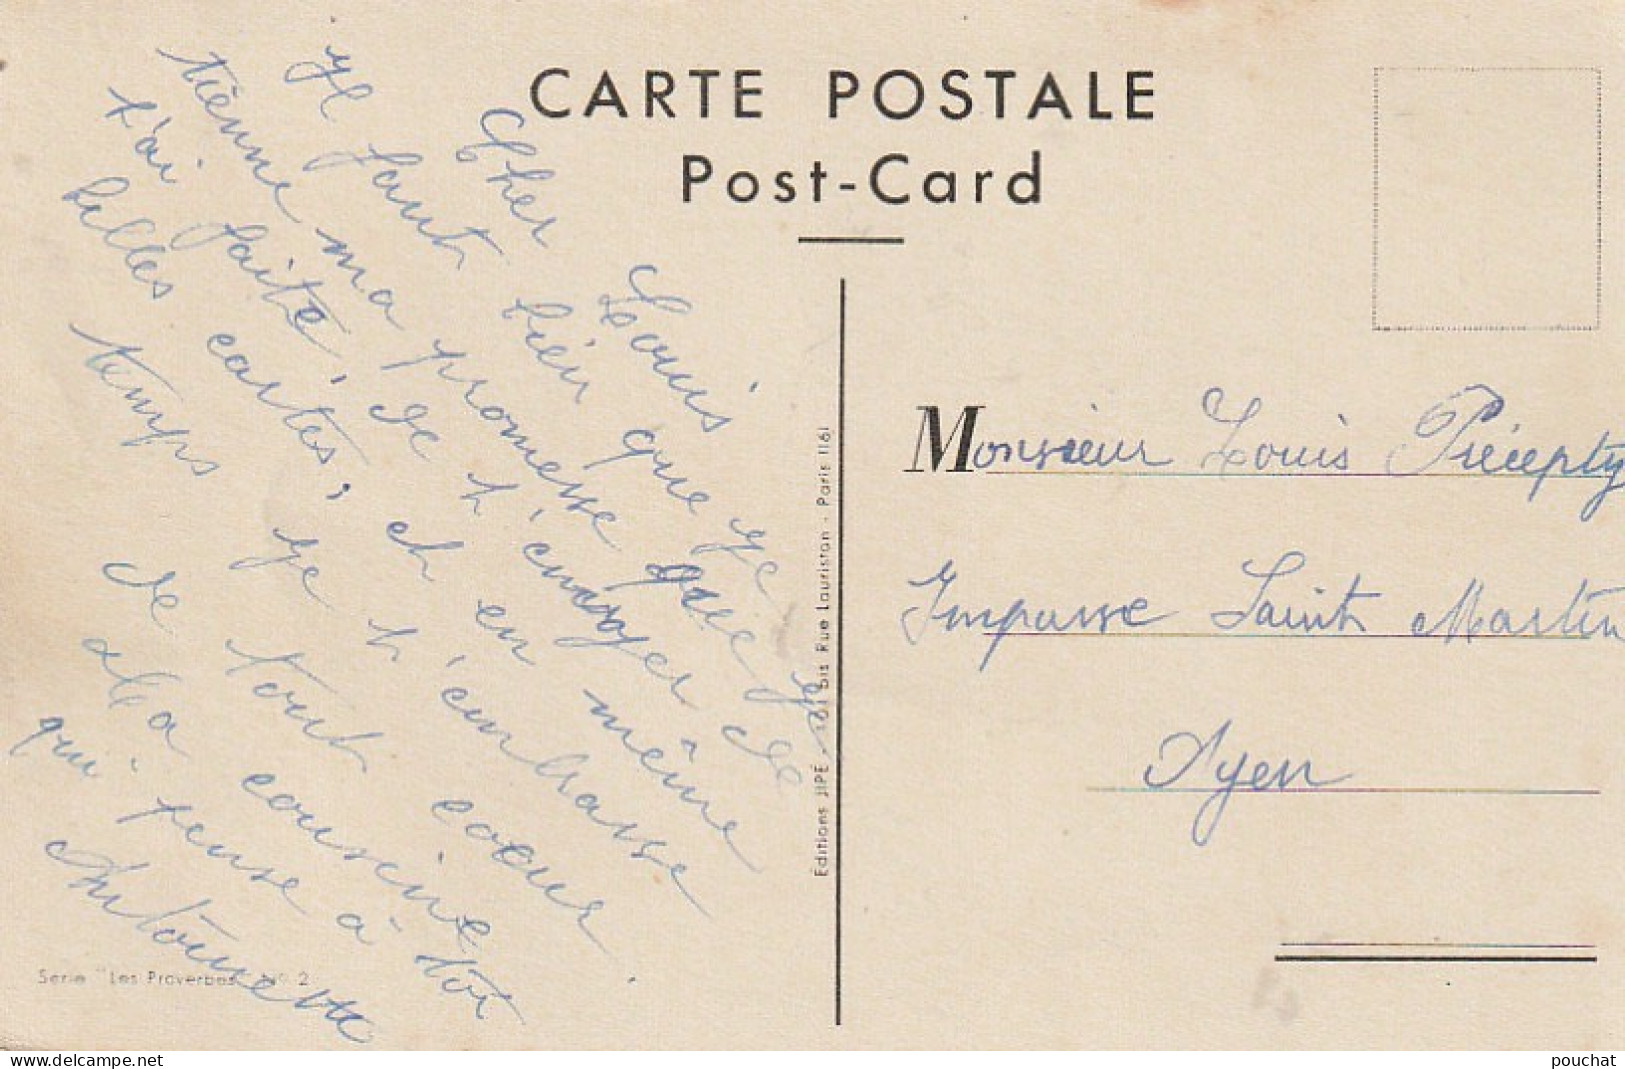 CARTE POSTALE
Post-Card
Cher Louis
Il faut bien que je
tienne ma promesse que je
t'ai faite, de t'envoyer de
belles cartes; et en même
temps je t'embrasse
de tout coeur.
Ta cousine
qui pense à toi
Antoinette
Serie "Les Proverbes" No 2
Editions JIPÉ - 101 bis Rue Lauriston - Paris 1161
Monsieur Louis
Impasse Saint Martin
Ayen
delcampe.net
pouchat